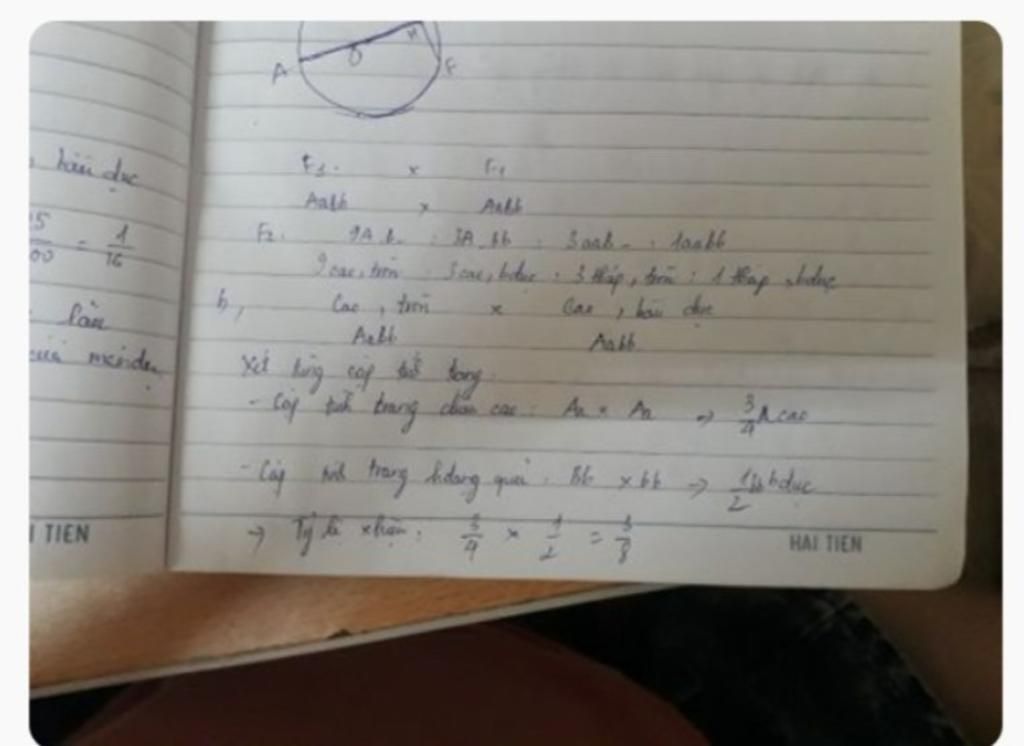 A O H F
hầu dục
25/100 = 1/16
lần
của menđen
F1 × F1
AaBb × AaBb
F2: 9A_B_ : 3A_bb : 3aaB_ : 1aabb
9 cao, tròn : 3 cao, bdục : 3 thấp, tròn : 1 thấp, bdục
b, Cao, tròn × Cao, bầu dục
AaBb Aabb
Xét từng cặp tính trạng
- Cặp tính trạng chiều cao: Aa × Aa → 3/4 cao
- Cặp tính trạng hdạng quả: Bb × bb → 1/2 bb bdục
→ Tỷ lệ : 3/4 × 1/2 = 3/8
I TIEN
HAI TIEN